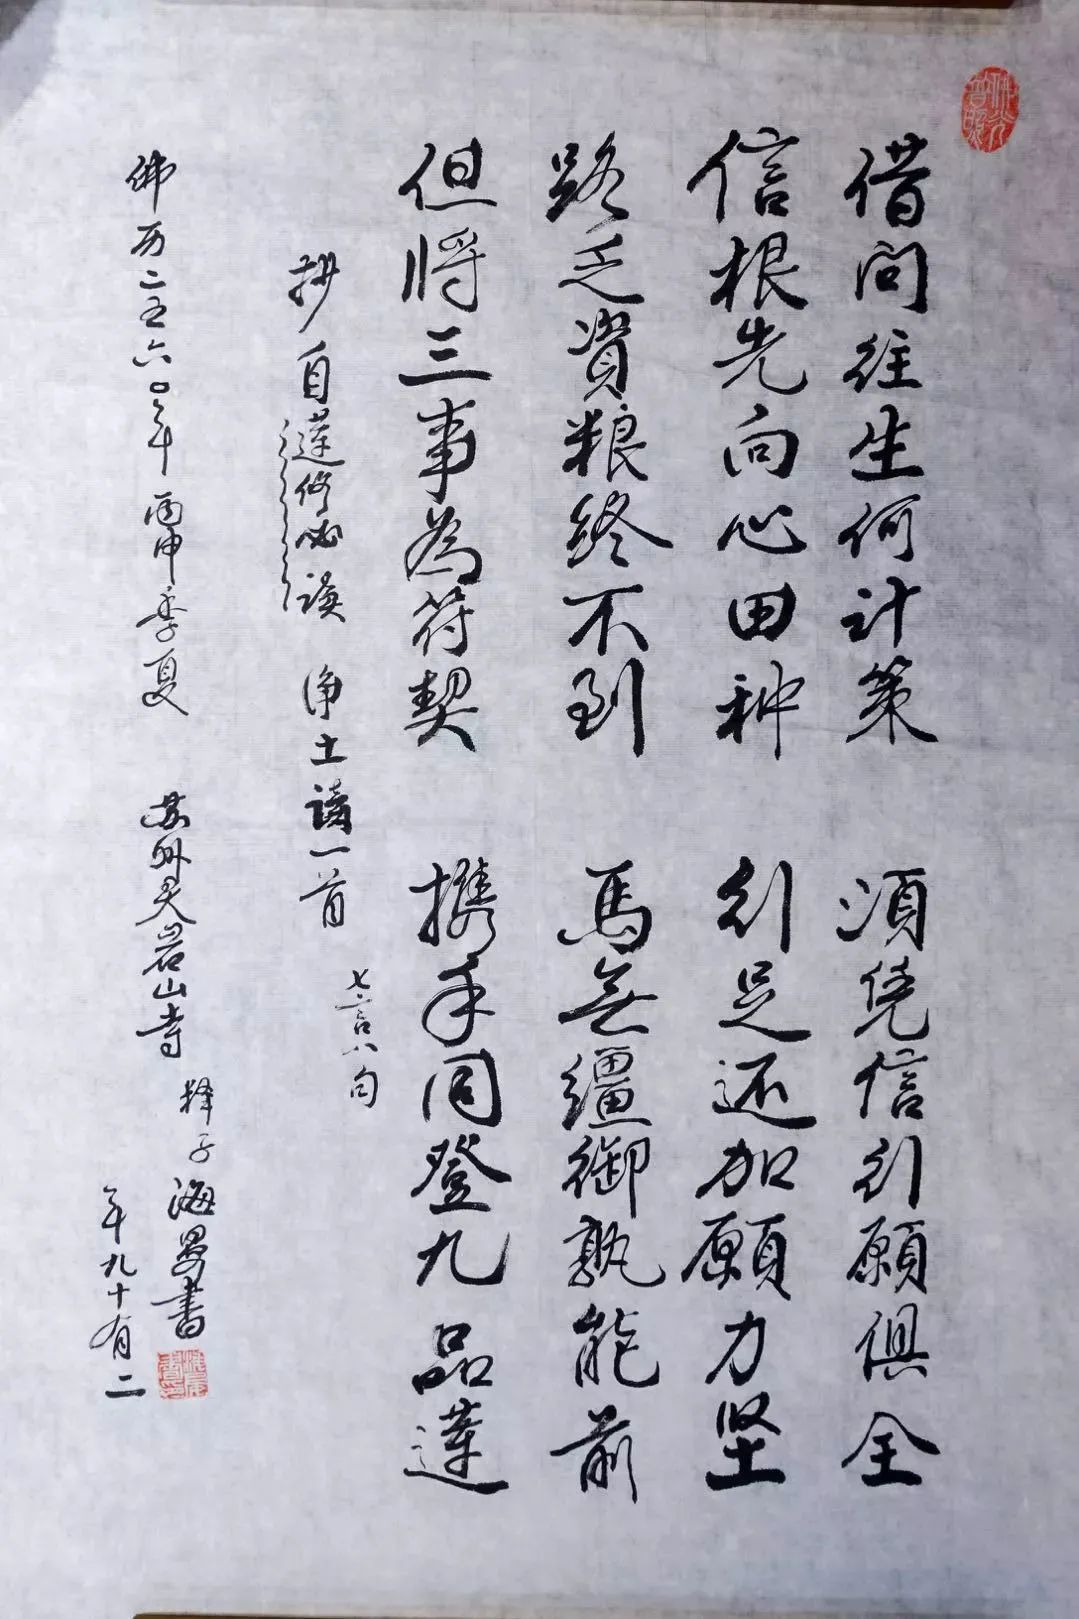 佛光普照
借问往生何计策 須凭信行願俱全
信根先向心田种 行足还加願力坚
路乏資粮终不到 馬無繮御孰能前
但将三事為符契 携手同登九品蓮
抄自蓮修必读 净土诗一首 七言八句
佛历二五六〇年 丙申季夏 苏州灵岩山寺 释子海書
年九十有二